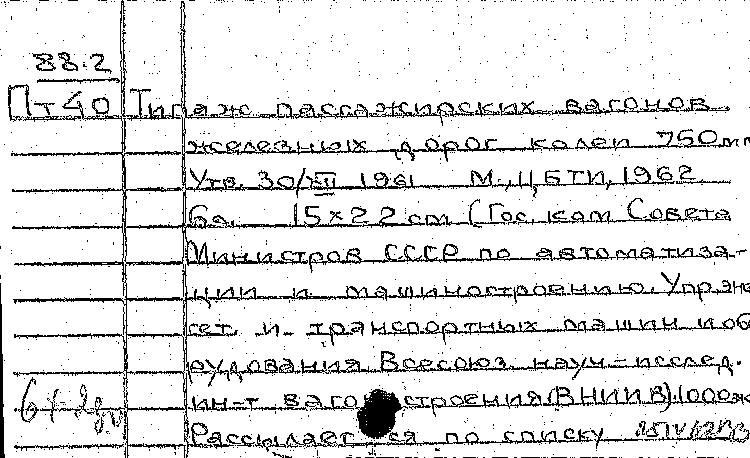 88.2
Пт40 Типаж пассажирских вагонов
железных дорог колеи 750мм
Утв. 30/XII 1961 М., ЦБТИ, 1962
6л. 15×22 см (Гос. ком Совета
Министров СССР по автоматиза-
ции и машиностроению. Упр.
сет. и транспортных машин и об
рудования. Всесоюз. науч-исслед.
ин-т вагоностроения (ВНИИВ). 1000
Рассылается по списку